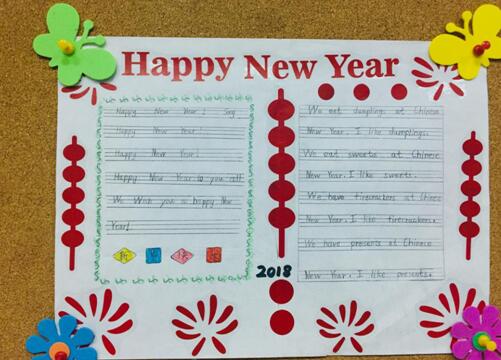 Happy New Year
Happy New Year! Sing
Happy New Year!
Happy New Year!
Happy New Year to you all!
We Wish you a happy New
Year!
We eat dumplings at Chinese
New Year. I like dumplings.
We eat sweets at Chinese
New Year. I like sweets.
We have firecrackers at Chinese
New Year. I like firecrackers.
We have presents at Chinese
New Year. I like presents.
2018